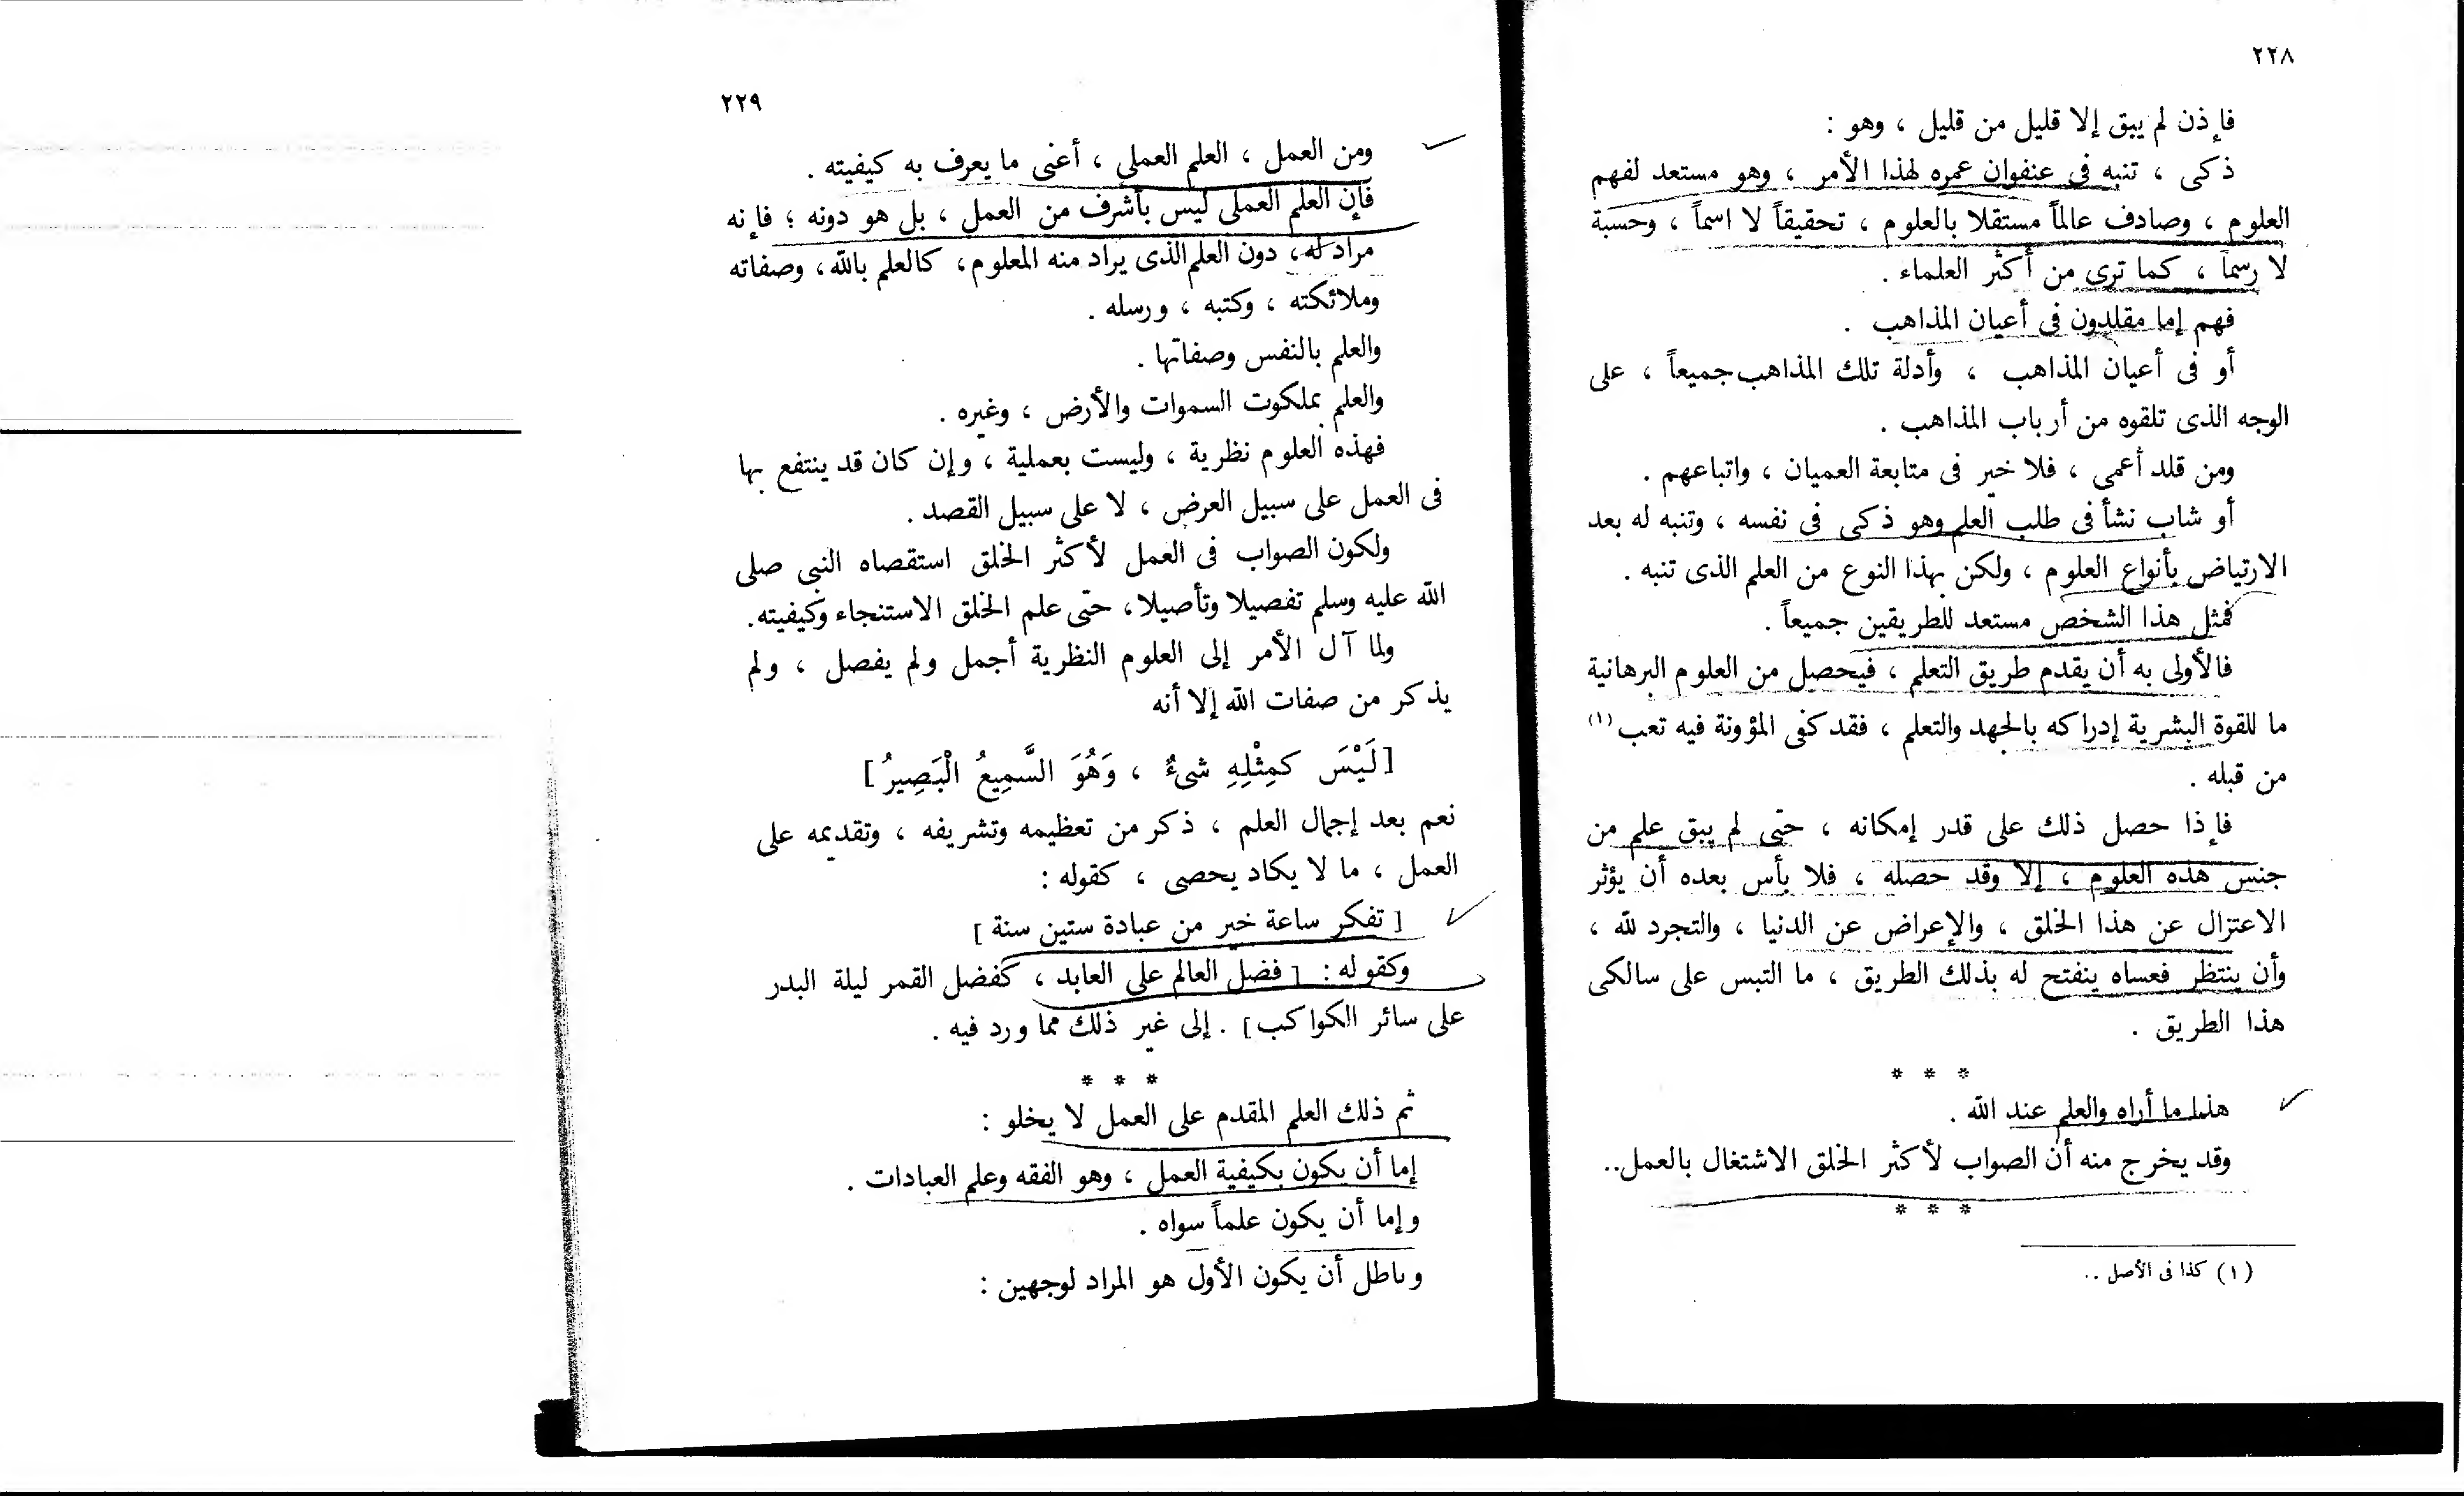 ٢٢٨
فإذن لم يبق إلا قليل من قليل ، وهو :
ذكى ، تنبه فى عنفوان عمره لهذا الأمر ، وهو مستعد لفهم
العلوم ، وصادف عالماً مستقلا بالعلوم ، تحقيقاً لا اسماً ، وحسبة
لا رسماً ، كما ترى من أكثر العلماء .
فهم إما مقلدون فى أعيان المذاهب .
أو فى أعيان المذاهب ، وأدلة تلك المذاهب جميعاً ، على
الوجه الذى تلقوه من أرباب المذاهب .
ومن قلد أعمى ، فلا خير فى متابعة العميان ، واتباعهم .
أو شاب نشأ فى طلب العلم وهو ذكى فى نفسه ، وتنبه له بعد
الارتياض بأنواع العلوم ، ولكن بهذا النوع من العلم الذى تنبه .
فمثل هذا الشخص مستعد للطريقين جميعاً .
فالأولى به أن يقدم طريق التعلم ، فيحصل من العلوم البرهانية
ما للقوة البشرية إدراكه بالجهد والتعلم ، فقد كفى المؤونة فيه تعب (١)
من قبله .
فإذا حصل ذلك على قدر إمكانه ، حتى لم يبق علم من
جنس هذه العلوم ، إلا وقد حصله ، فلا بأس بعده أن يؤثر
الاعتزال عن هذا الخلق ، والإعراض عن الدنيا ، والتجرد لله ،
وأن ينتظر فعساه ينفتح له بذلك الطريق ، ما التبس على سالكى
هذا الطريق .
* * *
هذا ما أراه والعلم عند الله .
وقد يخرج منه أن الصواب لأكثر الخلق الاشتغال بالعمل..
* * *
(١) كذا فى الأصل ..
٢٢٩
ومن العمل ، العلم العملى ، أعنى ما يعرف به كيفيته .
فإن العلم العملى ليس بأشرف من العمل ، بل هو دونه ؛ فإنه
مراد له، دون العلم الذى يراد منه المعلوم، كالعلم بالله، وصفاته
وملائكته ، وكتبه ، ورسله .
والعلم بالنفس وصفاتها .
والعلم بملكوت السموات والأرض ، وغيره .
فهذه العلوم نظرية ، وليست بعملية ، وإن كان قد ينتفع بها
فى العمل على سبيل العرض ، لا على سبيل القصد .
ولكون الصواب فى العمل لأكثر الخلق استقصاه النبى صلى
الله عليه وسلم تفصيلا وتأصيلا، حتى علم الخلق الاستنجاء وكيفيته.
ولما آل الأمر إلى العلوم النظرية أجمل ولم يفصل ، ولم
يذكر من صفات الله إلا أنه
[ لَيْسَ كمِثْلِهِ شىءٌ ، وَهُوَ السَّمِيعُ الْبَصِيرُ ]
نعم بعد إجمال العلم ، ذكر من تعظيمه وتشريفه ، وتقديمه على
العمل ، ما لا يكاد يحصى ، كقوله :
[ تفكر ساعة خير من عبادة ستين سنة ]
وكقوله : [ فضل العالم على العابد ، كفضل القمر ليلة البدر
على سائر الكواكب] . إلى غير ذلك مما ورد فيه .
* * *
ثم ذلك العلم المقدم على العمل لا يخلو :
إما أن يكون بكيفية العمل ، وهو الفقه وعلم العبادات .
وإما أن يكون علماً سواه .
وباطل أن يكون الأول هو المراد لوجهين :